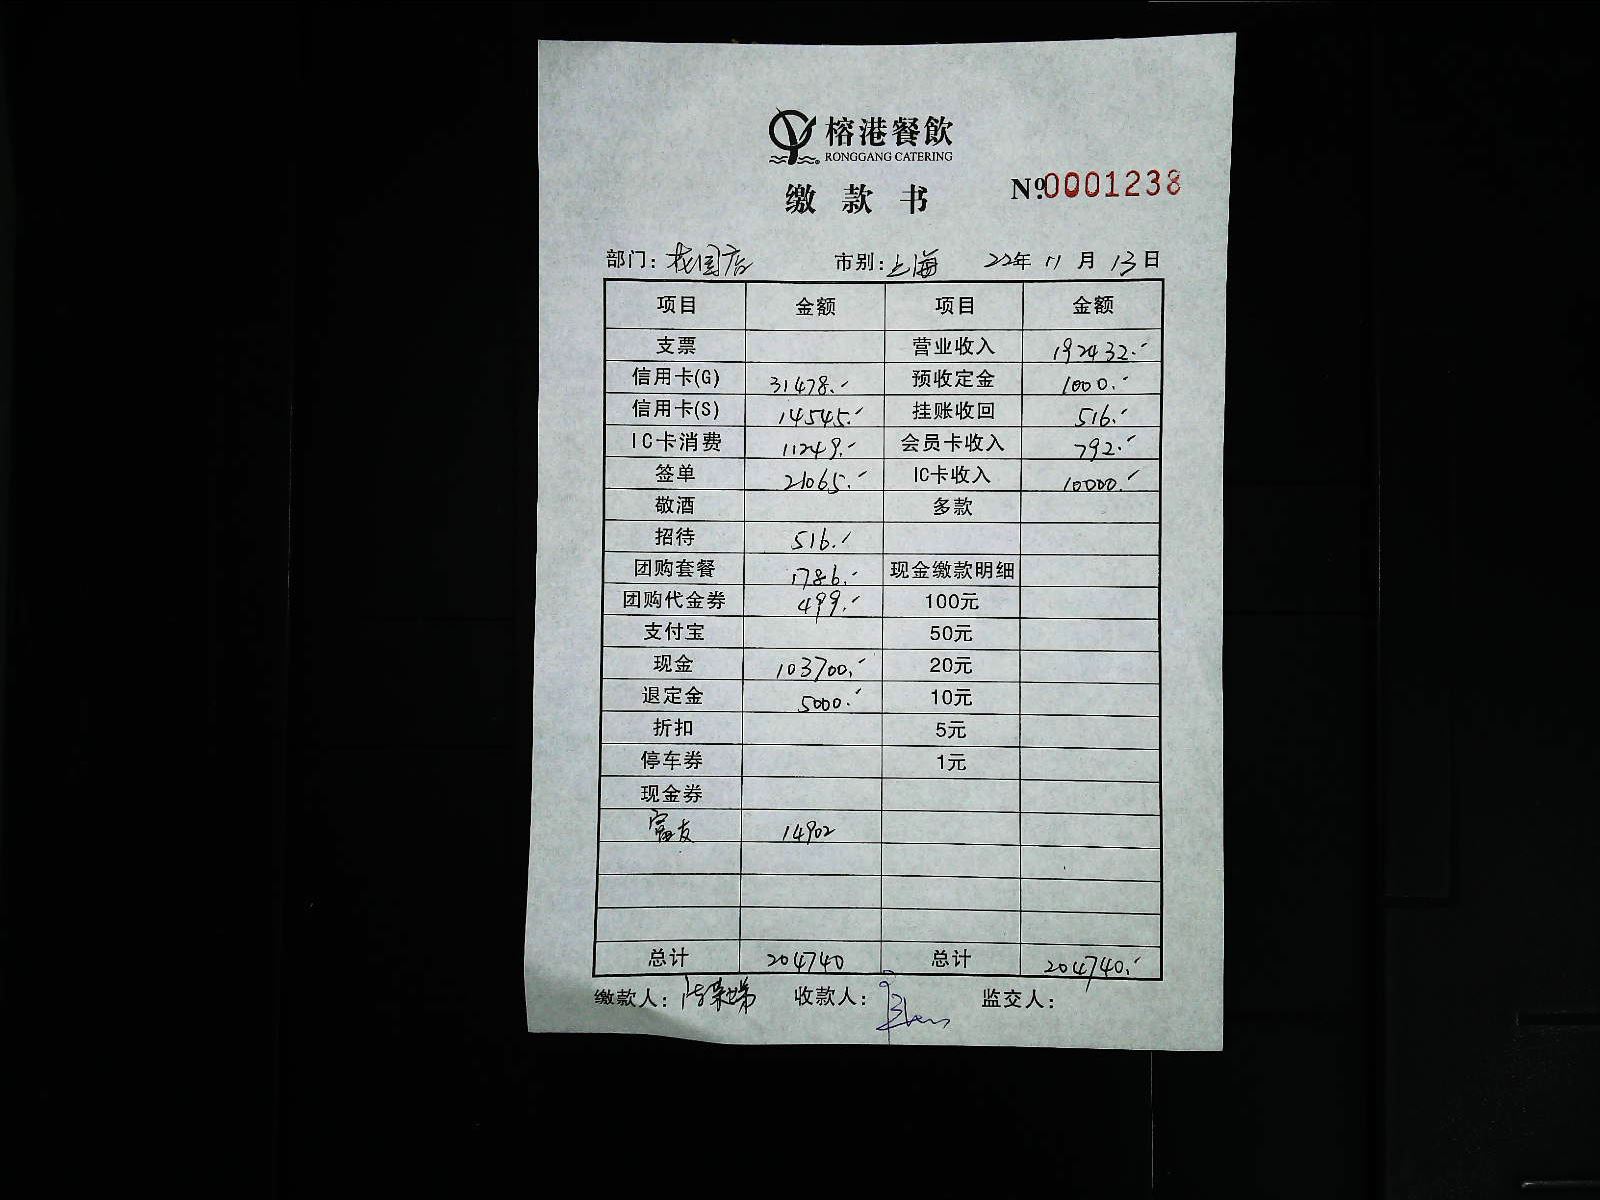 榕港餐飲
RONGGANG CATERING
缴款书 Nº.0001238
部门: 花园店 市别: 上海 22年 11月 13日
项目 金额 项目 金额
支票 营业收入 192432.-
信用卡(G) 31478.- 预收定金 1000.-
信用卡(S) 14545.- 挂账收回 516.-
IC卡消费 11249.- 会员卡收入 792.-
签单 21065.- IC卡收入 10000.-
敬酒 多款
招待 516.-
团购套餐 1786.- 现金缴款明细
团购代金券 499.- 100元
支付宝 50元
现金 103700.- 20元
退定金 5000.- 10元
折扣 5元
停车券 1元
现金券
富友 14902
总计 204740 总计 204740.-
缴款人: 收款人: 监交人: